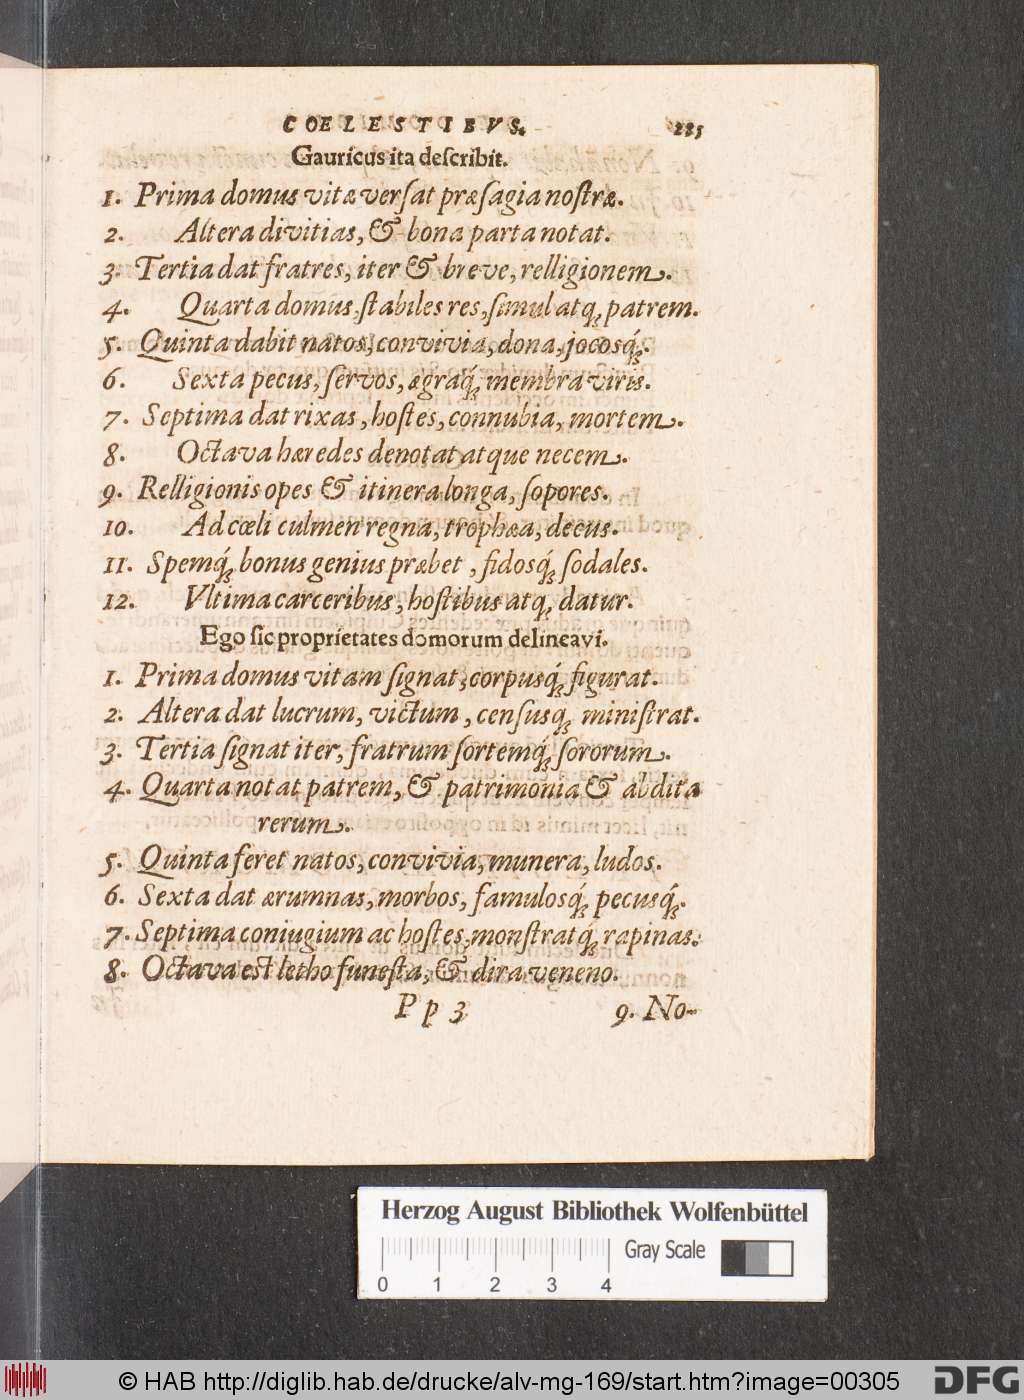 COELESTIBVS. 285
Gauricus ita deſcribit.
1. Prima domus vitæ verſat præſagia noſtræ.
2. Altera divitias, & bona parta notat.
3. Tertia dat fratres, iter & breve, relligionem.
4. Quarta domus, ſtabiles res, ſimul atq; patrem.
5. Quinta dabit natos, convivia, dona, jocosq́;.
6. Sexta pecus, ſervos, ægraq́; membra viris.
7. Septima dat rixas, hoſtes, connubia, mortem.
8. Octava hæredes denotat atque necem.
9. Relligionis opes & itinera longa, ſopores.
10. Ad cœli culmen regna, trophæa, decus.
11. Spemq́; bonus genius præbet, fidosq́; ſodales.
12. Vltima carceribus, hoſtibus atq; datur.
Ego ſic proprietates domorum delineavi.
1. Prima domus vitam ſignat, corpusq́; figurat.
2. Altera dat lucrum, victum, cenſusq; miniſtrat.
3. Tertia ſignat iter, fratrum ſortemq́; ſororum.
4. Quarta notat patrem, & patrimonia & abdita
rerum.
5. Quinta feret natos, convivia, munera, ludos.
6. Sexta dat ærumnas, morbos, famulosq́; pecusq́;.
7. Septima coniugium ac hoſtes, monſtratq́; rapinas.
8. Octava eſt letho funeſta, & dira veneno.
P p 3 9. No-
Herzog August Bibliothek Wolfenbüttel
Gray Scale
0 1 2 3 4
© HAB http://diglib.hab.de/drucke/alv-mg-169/start.htm?image=00305
DFG